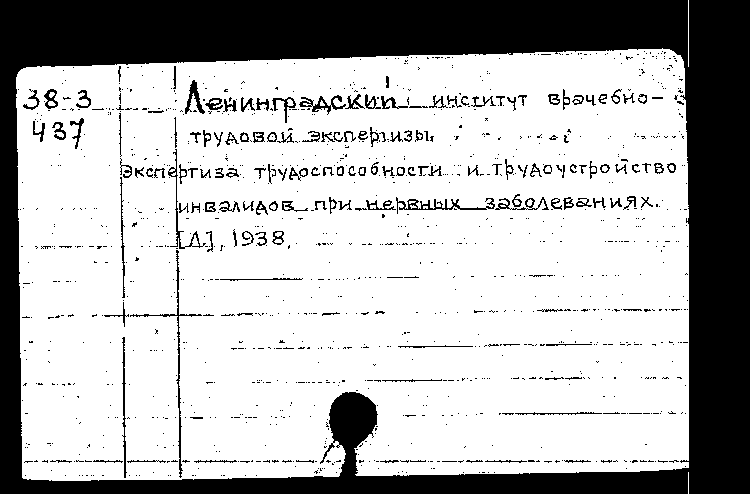 38-3 Ленинградский институт врачебно-
437 трудовой экспертизы.
Экспертиза трудоспособности и трудоустройство
инвалидов при нервных заболеваниях.
[Л.], 1938.